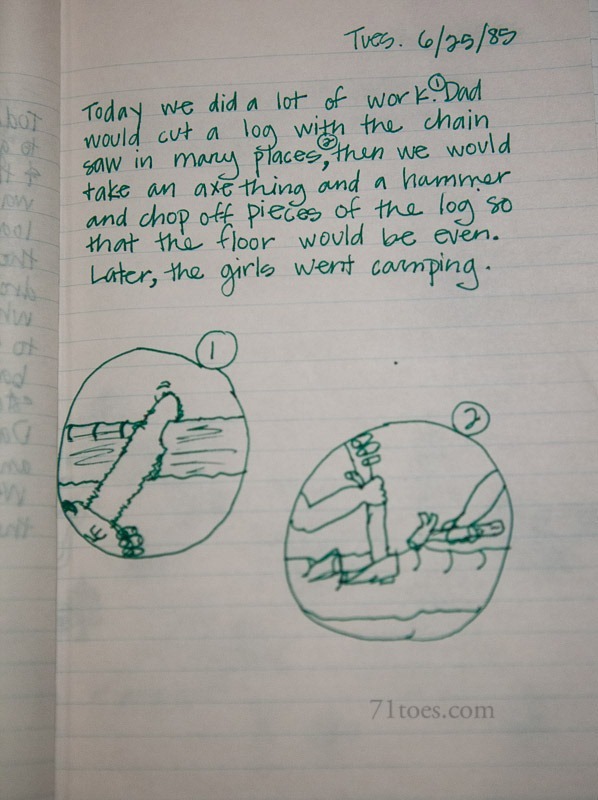 Tues. 6/25/85
Today we did a lot of work.① Dad
would cut a log with the chain
saw in many places,② then we would
take an axe thing and a hammer
and chop off pieces of the log so
that the floor would be even.
Later, the girls went camping.
1
2
71toes.com